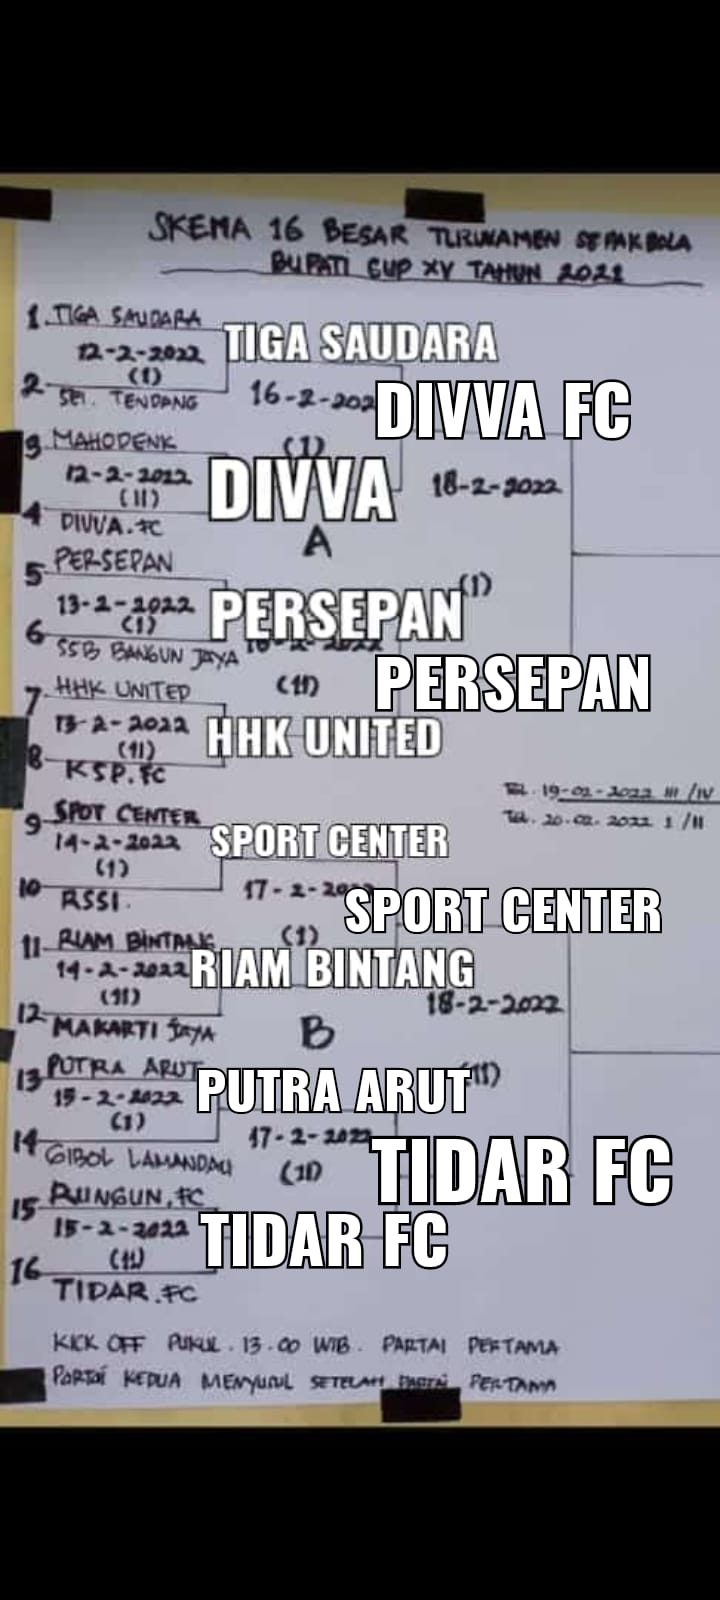 SKEMA 16 BESAR TURNAMEN SEPAKBOLA
BUPATI CUP XV TAHUN 2022
1. TIGA SAUDARA
TIGA SAUDARA
12-2-2022
(I)
2 SEI. TENDANG
16-2-202
DIVVA FC
3 MAHODENK
(I)
12-2-2022
(II)
DIVVA
18-2-2022
4 DIVVA.FC
A
5 PERSEPAN
(I)
13-2-2022
(I)
PERSEPAN
6 SSB BANGUN JAYA
PERSEPAN
7 HHK UNITED
(II)
13-2-2022
(II)
HHK UNITED
8 KSP.FC
TGL. 19-02-2022 III/IV
TGL. 20.02.2022 I/II
9 SPOT CENTER
14-2-2022
(I)
SPORT CENTER
10 RSSI.
17-2-20
SPORT CENTER
11 RIAM BINTANG
(I)
14-2-2022
(II)
RIAM BINTANG
18-2-2022
12 MAKARTI JAYA
B
13 PUTRA ARUT
(II)
15-2-2022
(I)
PUTRA ARUT
14 GIBOL LAMANDAU
17-2-2022
(II)
TIDAR FC
15 RUNGUN.FC
15-2-2022
(II)
TIDAR FC
16 TIDAR.FC
KICK OFF PUKUL. 13.00 WIB. PARTAI PERTAMA
PARTAI KEDUA MENYUSUL SETELAH PARTAI PERTAMA